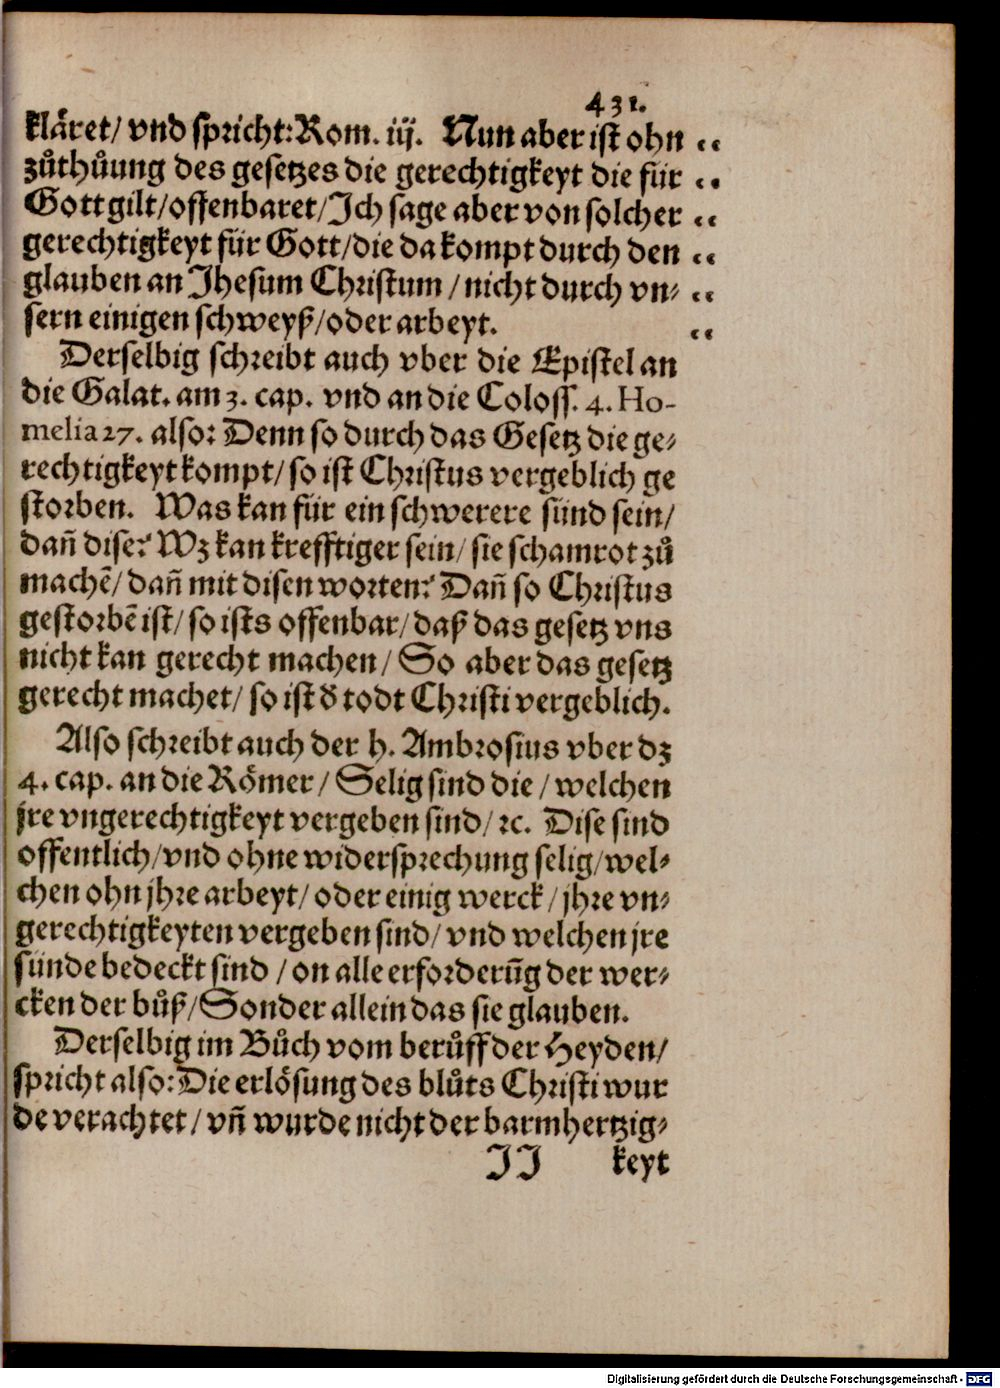 431.
kläret/ vnd spricht: Rom. iij. Nun aber ist ohn „
zůthůung des gesetzes die gerechtigkeyt die für „
Gott gilt/ offenbaret/ Ich sage aber von solcher „
gerechtigkeyt für Gott/ die da kompt durch den „
glauben an Jhesum Christum / nicht durch vn⸗ „
sern einigen schweyß/ oder arbeyt. „
Derselbig schreibt auch vber die Epistel an
die Galat. am 3. cap. vnd an die Coloss. 4. Ho-
melia 27. also: Denn so durch das Gesetz die ge⸗
rechtigkeyt kompt/ so ist Christus vergeblich ge
storben. Was kan für ein schwerere sünd sein/
dañ dise? Wz kan krefftiger sein/ sie schamrot zů
machē/ dañ mit disen worten? Dañ so Christus
gestorbē ist/ so ists offenbar/ daß das gesetz vns
nicht kan gerecht machen/ So aber das gesetz
gerecht machet/ so ist đ todt Christi vergeblich.
Also schreibt auch der h. Ambrosius vber dz
4. cap. an die Römer/ Selig sind die / welchen
jre vngerechtigkeyt vergeben sind/ ꝛc. Dise sind
offentlich/ vnd ohne widersprechung selig/ wel⸗
chen ohn jhre arbeyt/ oder einig werck / jhre vn⸗
gerechtigkeyten vergeben sind/ vnd welchen jre
sünde bedeckt sind / on alle erforderūg der wer⸗
cken der bůß/ Sonder allein das sie glauben.
Derselbig im Bůch vom berůff der Heyden/
spricht also: Die erlösung des blůts Christi wur
de verachtet/ vñ wurde nicht der barmhertzig⸗
JJ keyt
Digitalisierung gefördert durch die Deutsche Forschungsgemeinschaft - DFG